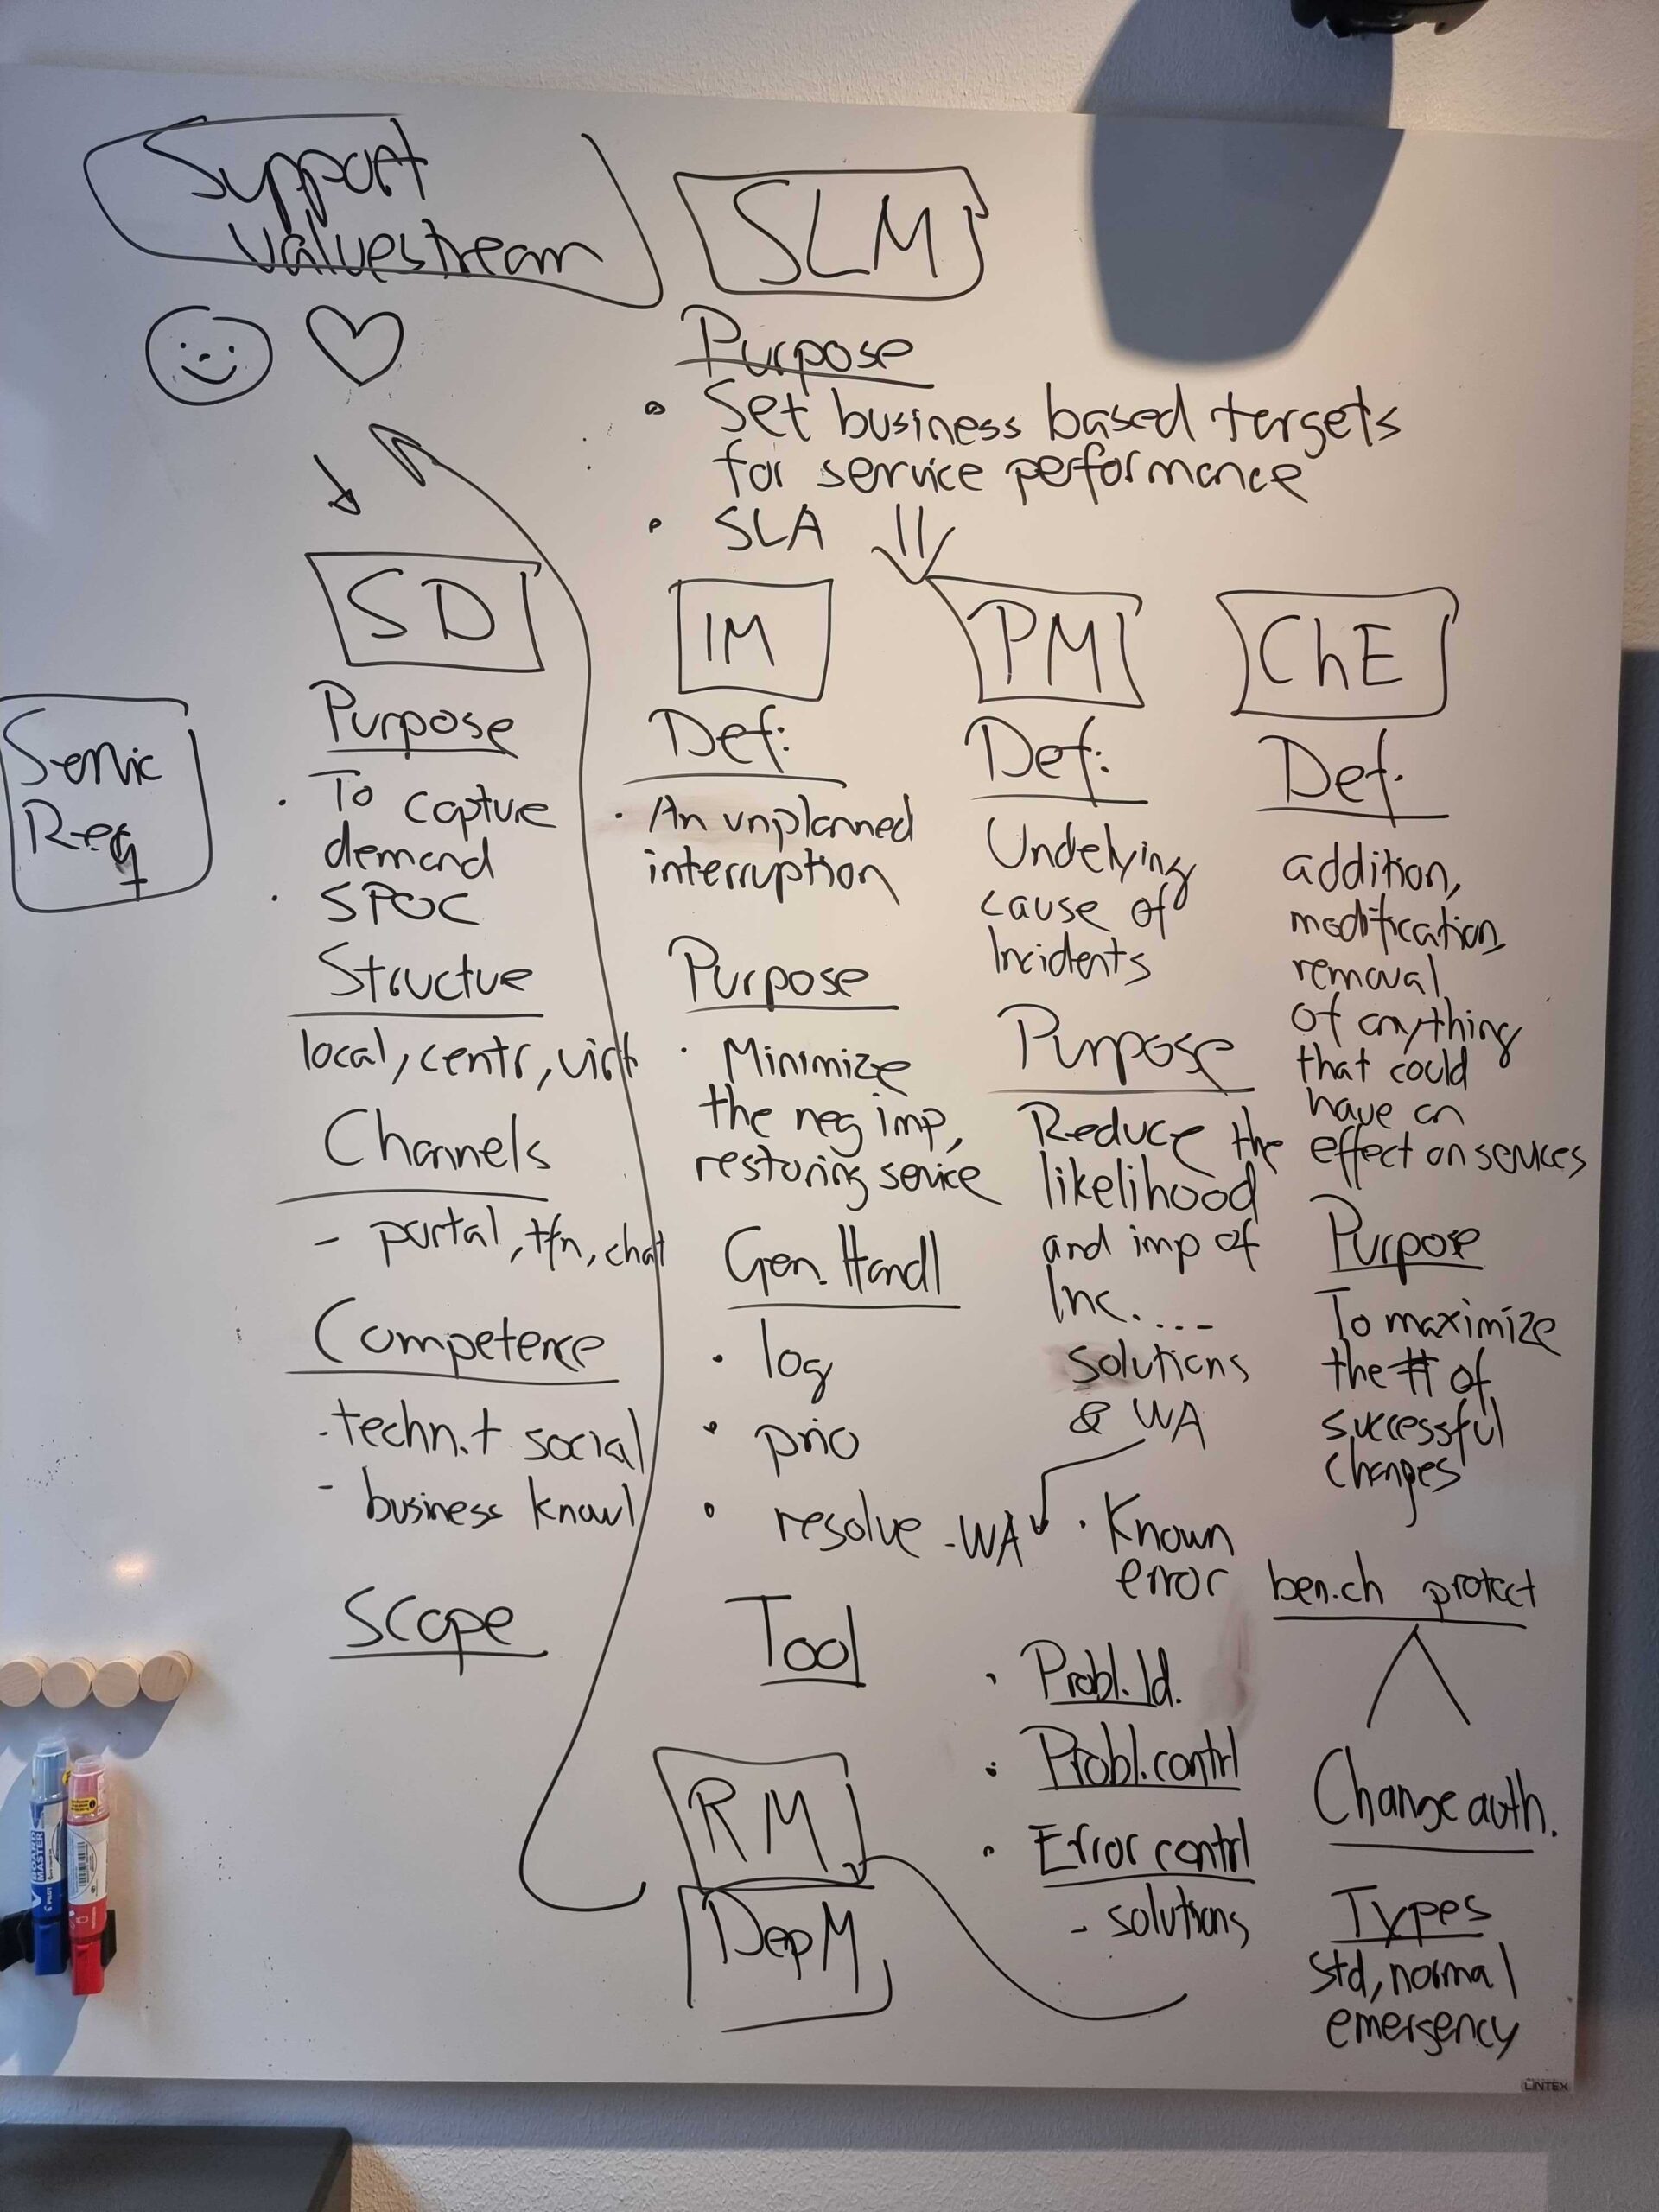 Support
Valuestream
SLM
Purpose
• Set business based targets
for service performance
• SLA
SD
Purpose
• To capture
demand
• SPOC
Structure
local, centr, virt
Channels
- portal, tfn, chat
Competence
- techn. + social
- business knowl
Scope
Servic
Req
IM
Def:
• An unplanned
interruption
Purpose
• Minimize
the neg imp,
restoring service
Gen. Handl
• log
• prio
• resolve - WA
Tool
RM
DepM
PM
Def:
Undelying
cause of
Incidents
Purpose
Reduce the
likelihood
and imp of
Inc. ....
solutions
& WA
• Known
error
• Probl. Id.
• Probl. contrl
• Error contrl
- solutions
ChE
Def:
addition,
modification,
removal
of anything
that could
have an
effect on services
Purpose
To maximize
the # of
successful
changes
ben. ch protect
Change auth.
Types
Std, normal
emergency
BOARD
MASTER
PILOT
LINTEX